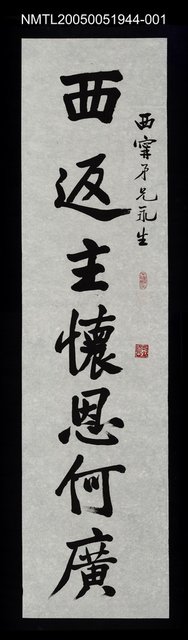 NMTL20050051944-001
西甯弟兄永生
西返主懷恩何廣